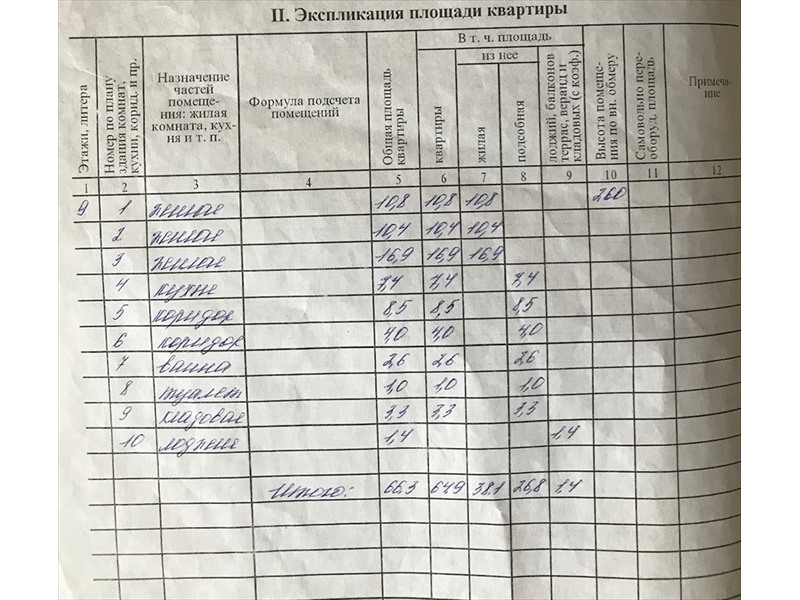 II. Экспликация площади квартиры
Этажи, литера
Номер по плану здания комнат, кухни, корид. и пр.
Назначение частей помеще-ния: жилая комната, кух-ня и т. п.
Формула подсчета помещений
Общая площадь квартиры
В т. ч. площадь
из нее
квартиры
жилая
подсобная
лоджий, балконов террас, веранд и кладовых (с коэф.)
Высота помеще-ния по вн. обмеру
Самовольно пере-оборуд. площадь
Примеча-ние
1 2 3 4 5 6 7 8 9 10 11 12
9 1 жилая 10,8 10,8 10,8 260
2 жилая 10,4 10,4 10,4
3 жилая 16,9 16,9 16,9
4 кухня 7,4 7,4 7,4
5 коридор 8,5 8,5 8,5
6 коридор 4,0 4,0 4,0
7 ванна 2,6 2,6 2,6
8 туалет 1,0 1,0 1,0
9 кладовая 3,3 3,3 3,3
10 лоджия 1,4 1,4
Итого: 66,3 64,9 38,1 26,8 1,4